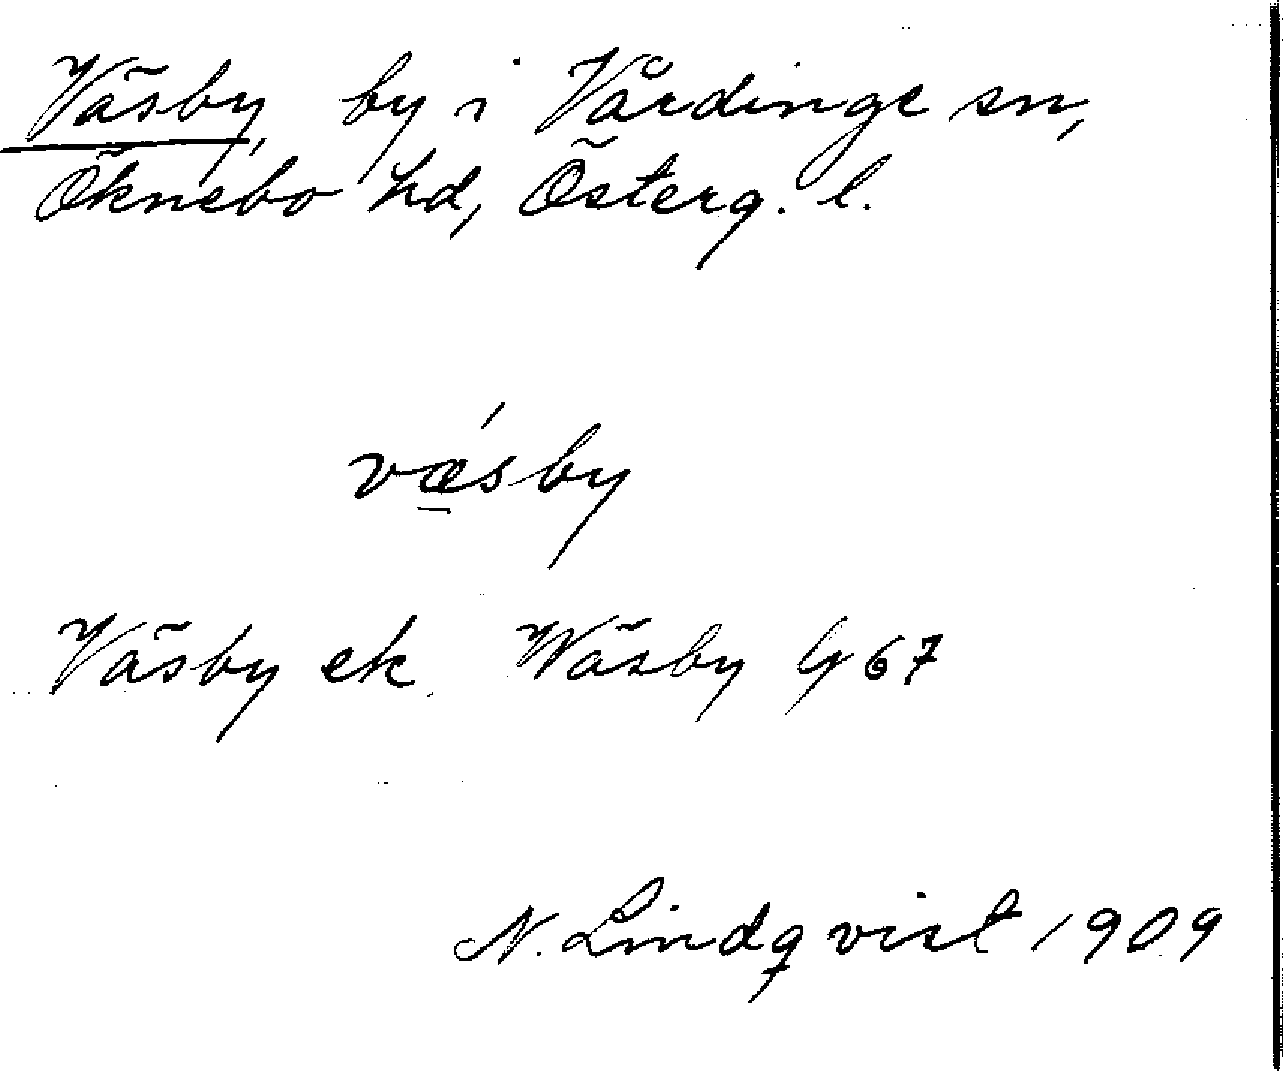 Väsby, by i Vårdinge sn,
Öknebo hd, Österg. l.
vǽ̲sby
Väsby ek. Wäsby G 67
N. Lindqvist 1909